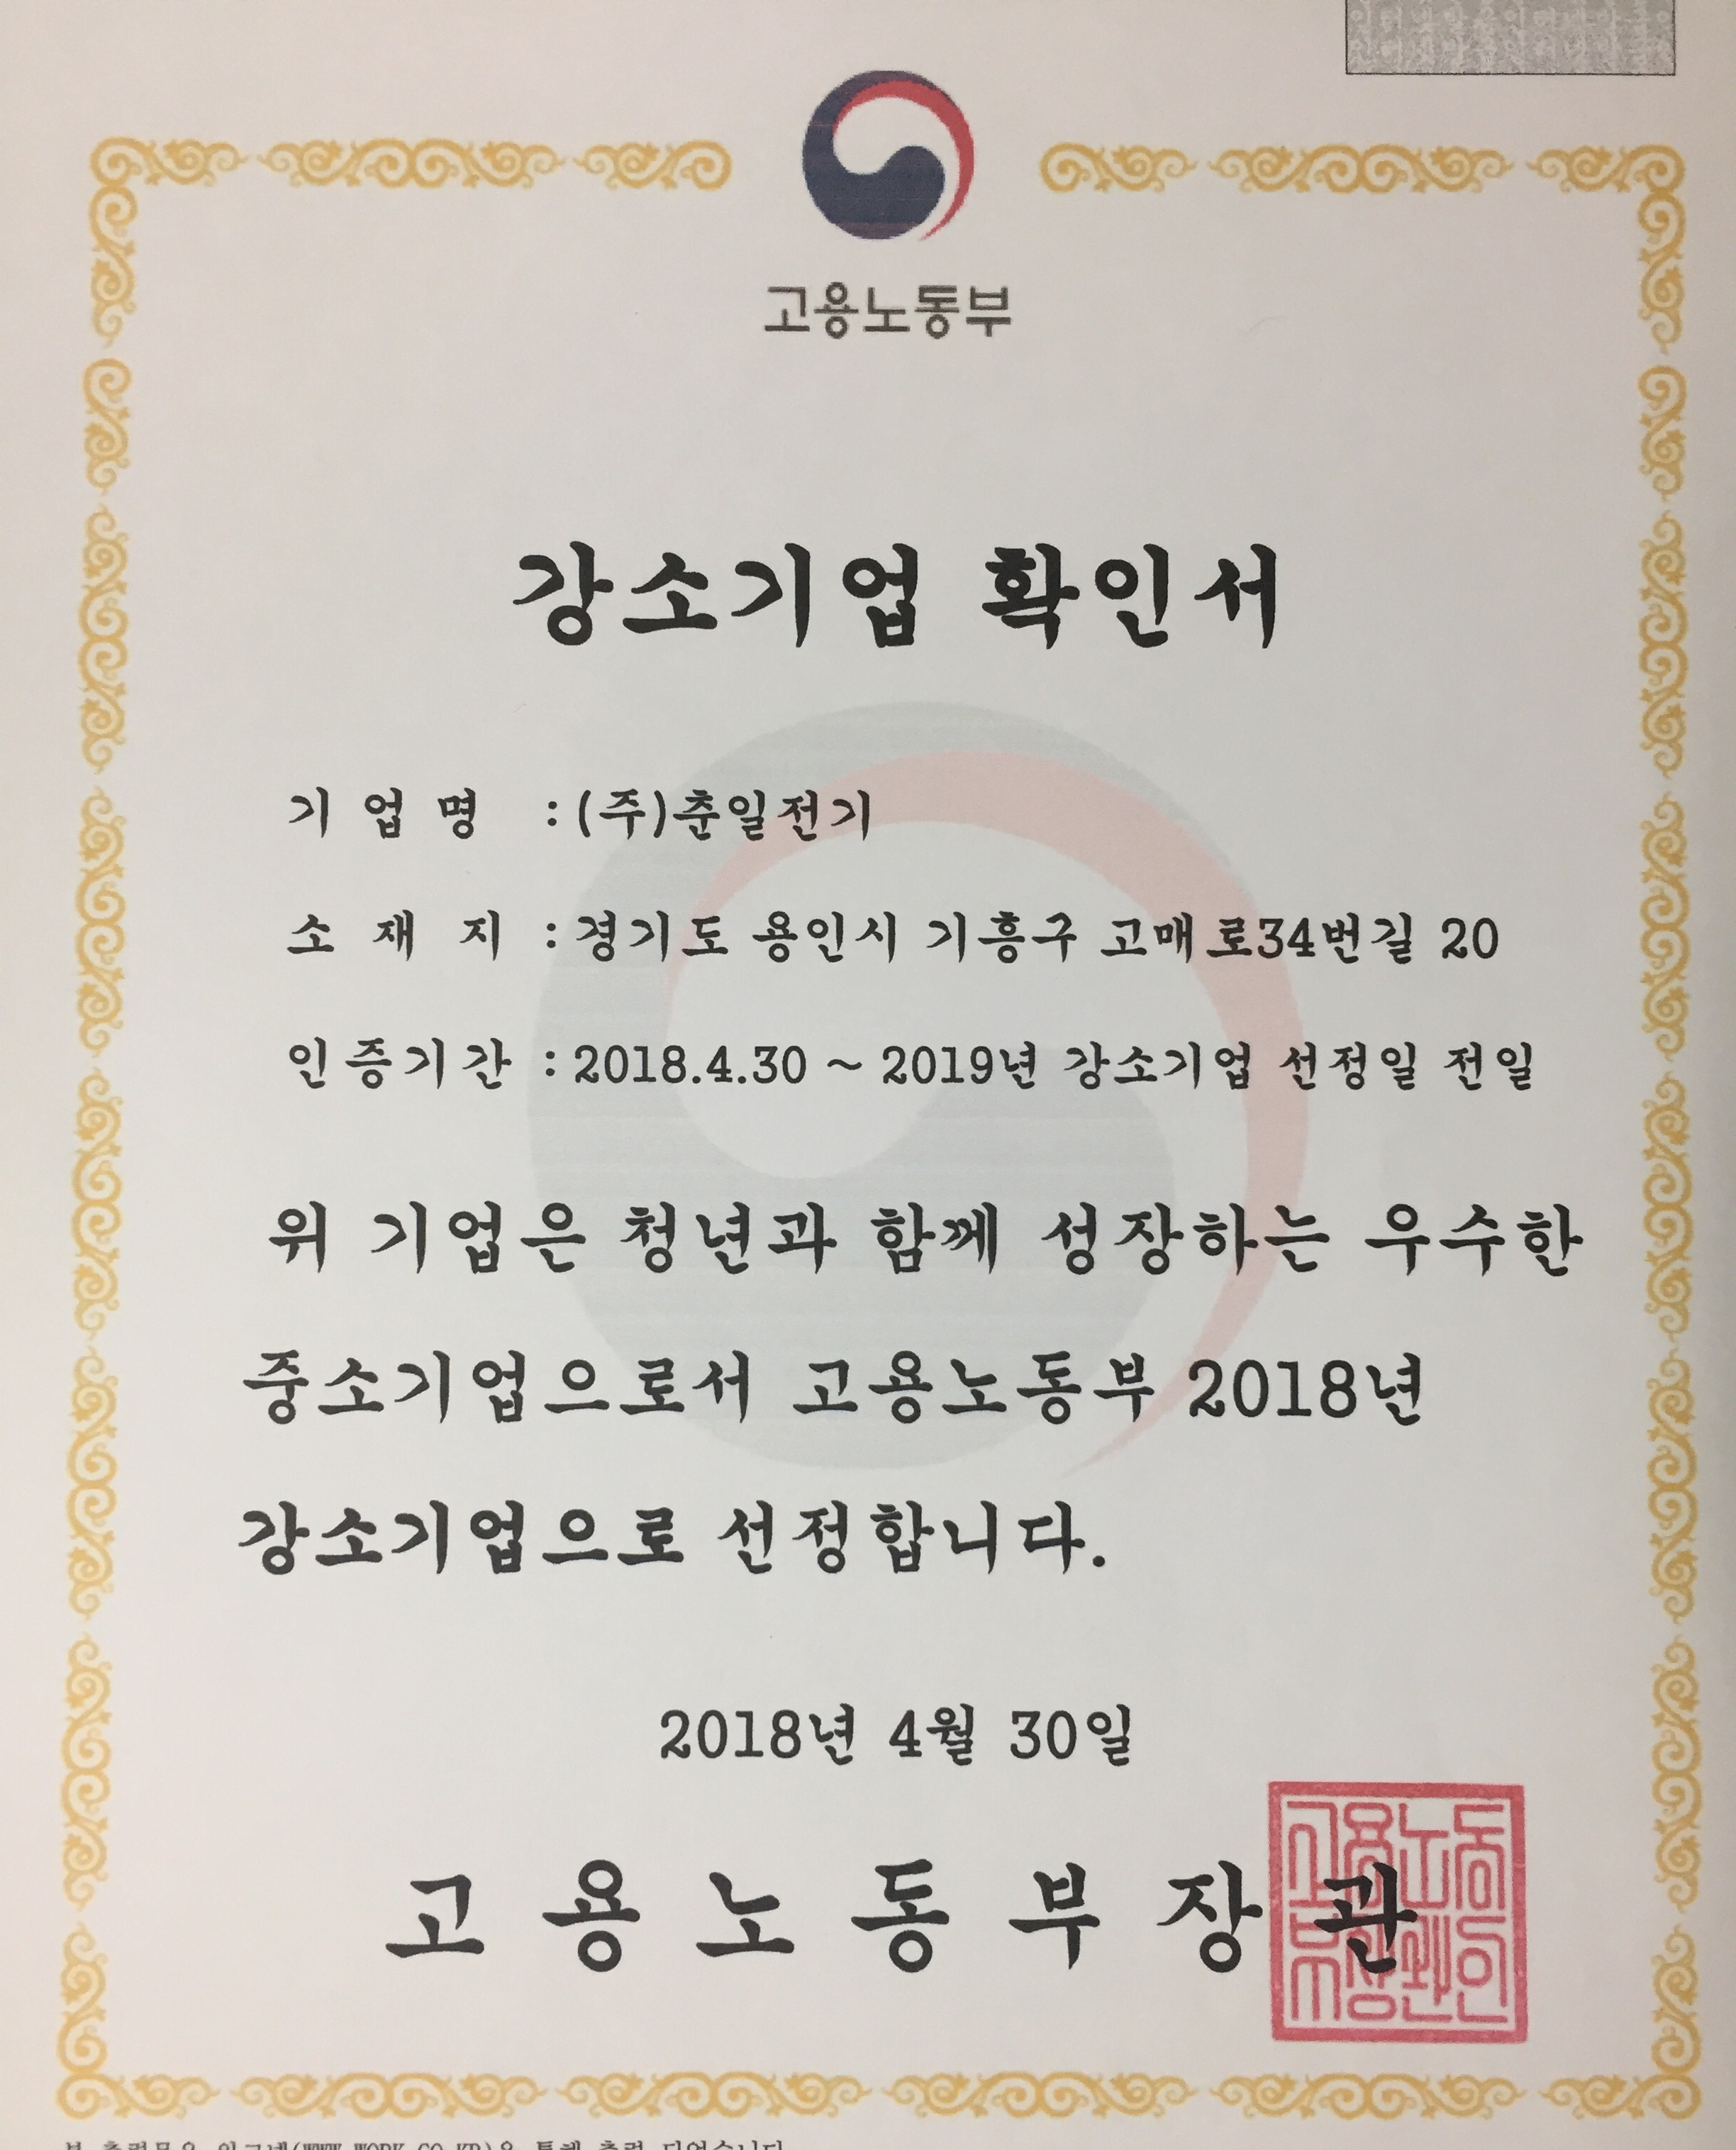 고용노동부
강소기업 확인서
기 업 명 : (주)춘일전기
소 재 지 : 경기도 용인시 기흥구 고매로34번길 20
인증기간 : 2018.4.30 ~ 2019년 강소기업 선정일 전일
위 기업은 청년과 함께 성장하는 우수한
중소기업으로서 고용노동부 2018년
강소기업으로 선정합니다.
2018년 4월 30일
고 용 노 동 부 장 관
고용노동
부장관인
본 출력물은 워크넷(WWW.WORK.GO.KR)을 통해 출력 되었습니다